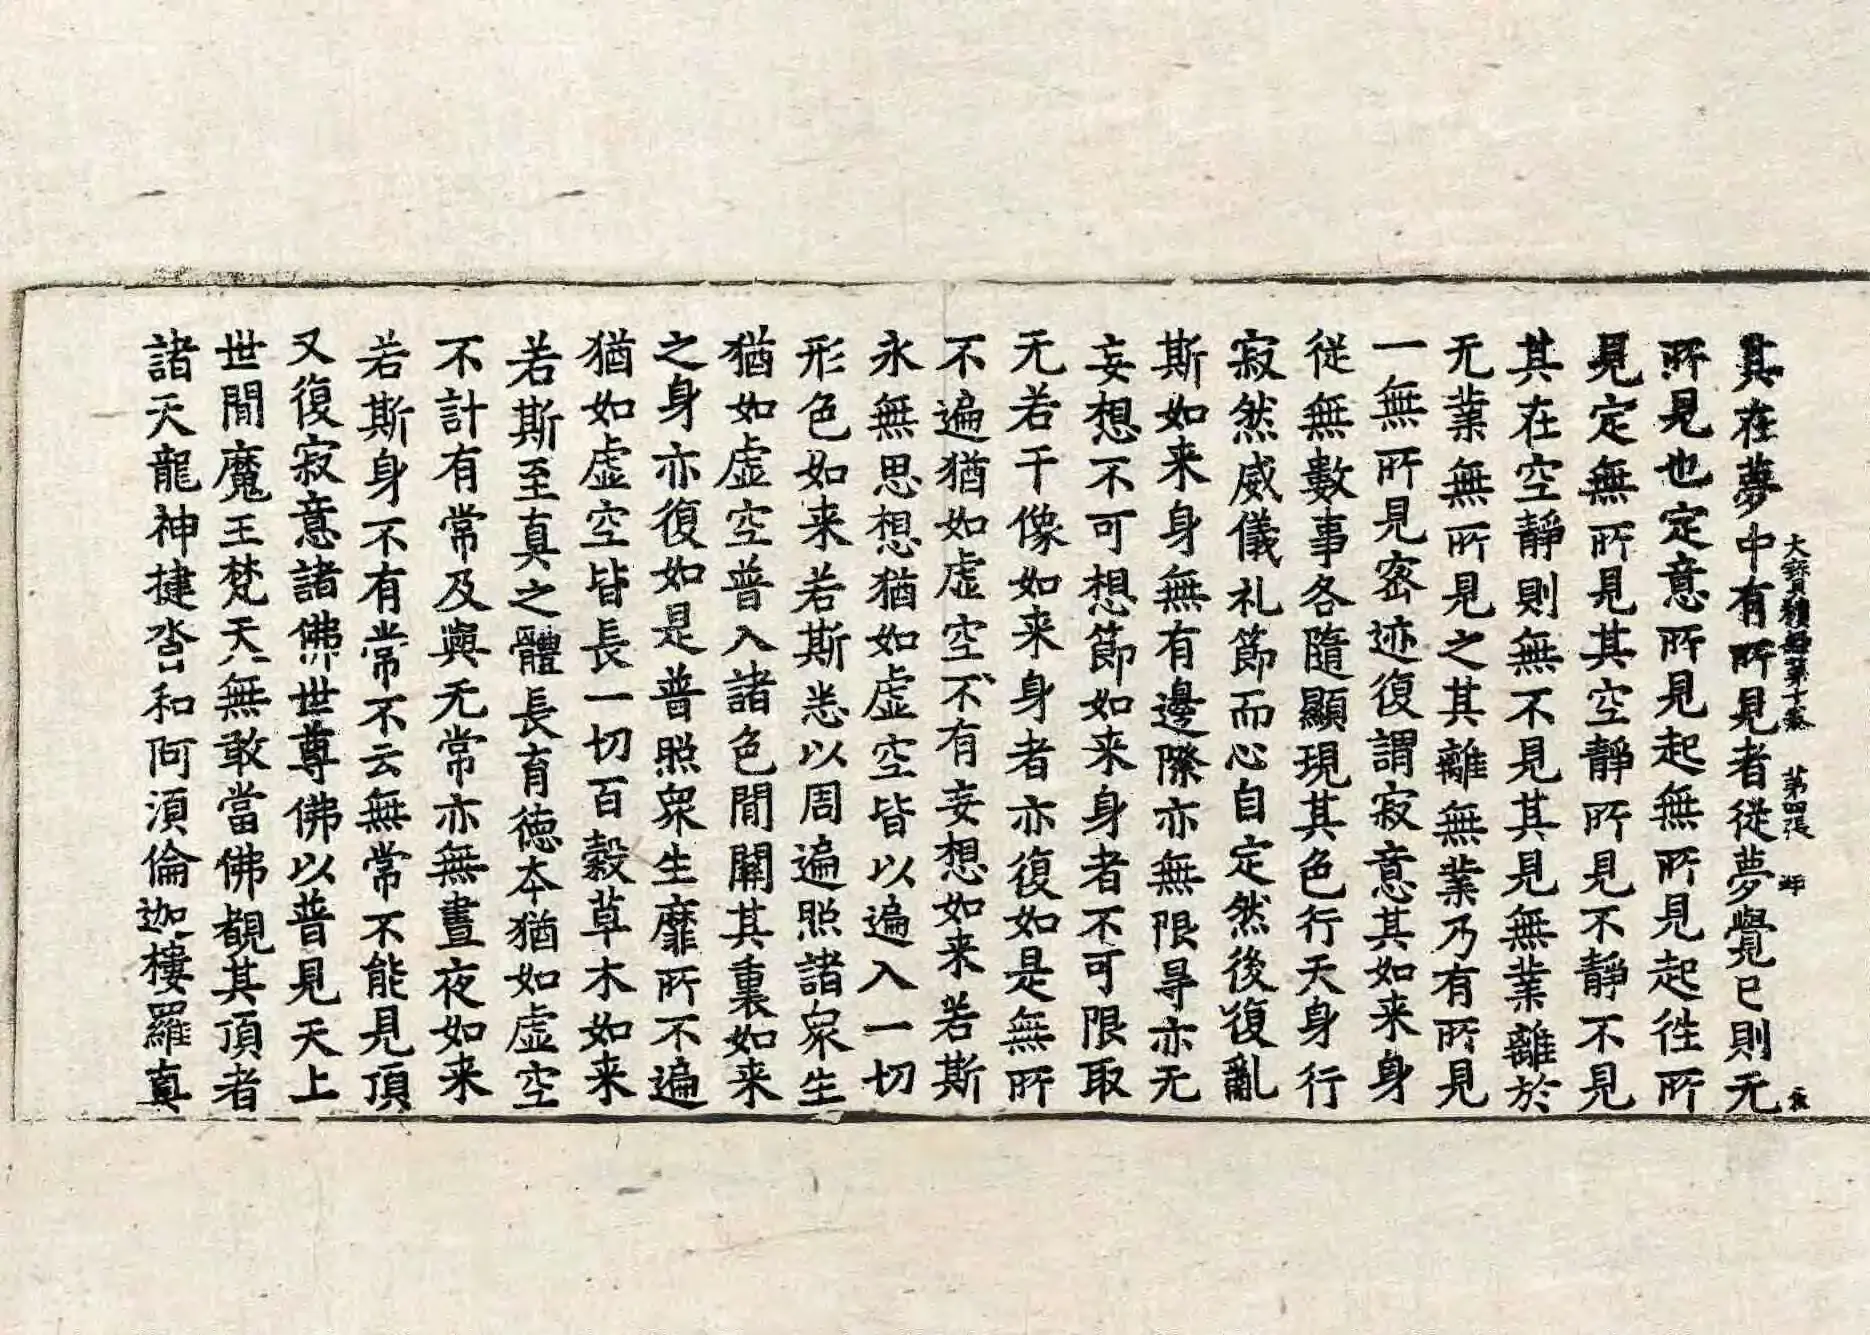 其在夢中有所見者從夢覺已則无
大寶積經第十卷 第四張
所見也定意所見起無所見起往所
見定無所見其空靜所見不靜不見
其在空靜則無不見其見無業離於
无業無所見之其離無業乃有所見
一無所見密迹復謂寂意其如来身
從無數事各隨顯現其色行天身行
寂然威儀礼節而心自定然後復亂
斯如来身無有邊際亦無限㝵亦无
妄想不可想節如来身者不可限取
无若干像如来身者亦復如是無所
不遍猶如虛空不有妄想如来若斯
永無思想猶如虛空皆以遍入一切
形色如来若斯悉以周遍照諸衆生
猶如虛空普入諸色閒關其裏如来
之身亦復如是普照衆生靡所不遍
猶如虛空皆長一切百穀草木如来
若斯至真之體長育德本猶如虛空
不計有常及與无常亦無晝夜如来
若斯身不有常不云無常不能見頂
又復寂意諸佛世尊佛以普見天上
世閒魔王梵天無敢當佛覩其頂者
諸天龍神揵沓和阿須倫迦樓羅真